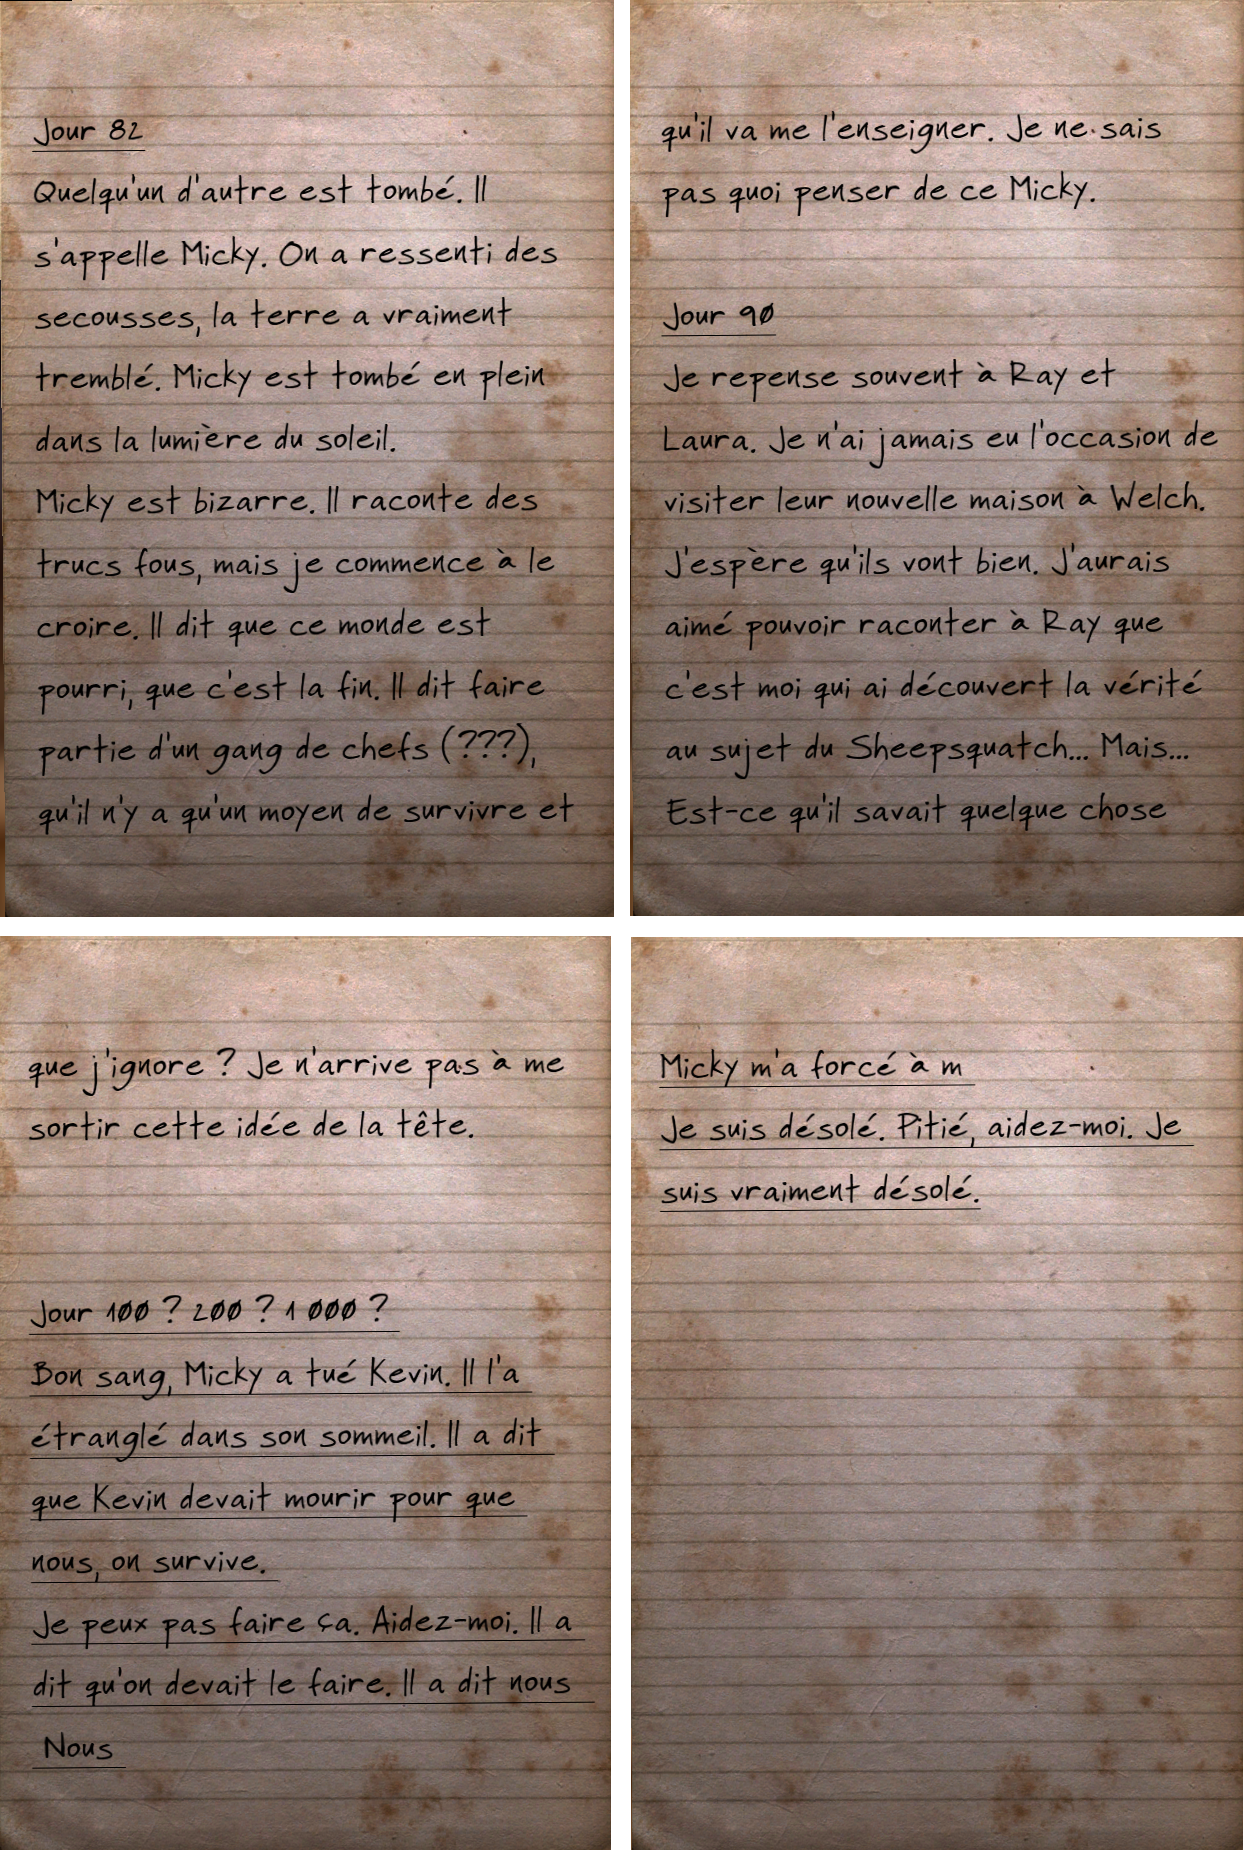 Jour 82
Quelqu'un d'autre est tombé. Il
s'appelle Micky. On a ressenti des
secousses, la terre a vraiment
tremblé. Micky est tombé en plein
dans la lumière du soleil.
Micky est bizarre. Il raconte des
trucs fous, mais je commence à le
croire. Il dit que ce monde est
pourri, que c'est la fin. Il dit faire
partie d'un gang de chefs (???),
qu'il n'y a qu'un moyen de survivre et
qu'il va me l'enseigner. Je ne sais
pas quoi penser de ce Micky.
Jour 90
Je repense souvent à Ray et
Laura. Je n'ai jamais eu l'occasion de
visiter leur nouvelle maison à Welch.
J'espère qu'ils vont bien. J'aurais
aimé pouvoir raconter à Ray que
c'est moi qui ai découvert la vérité
au sujet du Sheepsquatch... Mais...
Est-ce qu'il savait quelque chose
que j'ignore ? Je n'arrive pas à me
sortir cette idée de la tête.
Jour 100 ? 200 ? 1 000 ?
Bon sang, Micky a tué Kevin. Il l'a
étranglé dans son sommeil. Il a dit
que Kevin devait mourir pour que
nous, on survive.
Je peux pas faire ça. Aidez-moi. Il a
dit qu'on devait le faire. Il a dit nous
Nous
Micky m'a forcé à m
Je suis désolé. Pitié, aidez-moi. Je
suis vraiment désolé.